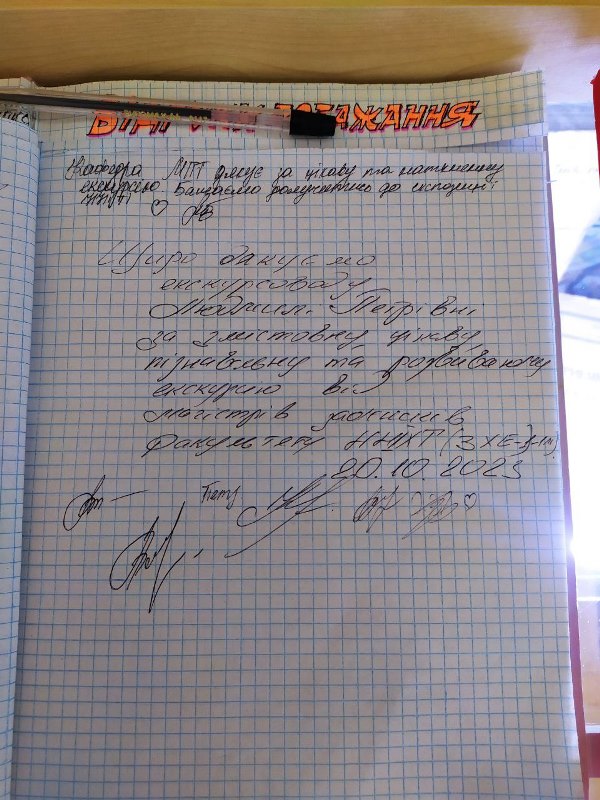 ВІДГУКИ ТА ПОБАЖАННЯ
Кафедра МПТ дякує за цікаву та натхненну
екскурсію. Бажаємо долучатись до експозиції
♡
Щиро дякуємо
екскурсоводу
Людмил. Петрівні
за змістовну цікаву
пізнавльну та розвиваючу
екскурсію від
магістрів заочників
факультету ННІХТ (ЗХЕ-
20.10.2023
♡